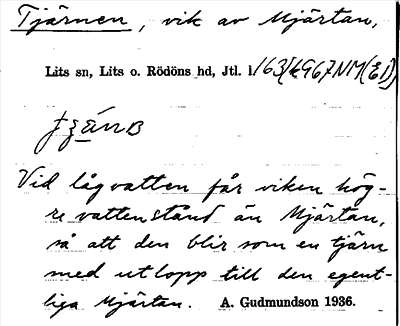 Tjärnen, vik av Mjärtan,
Lits sn, Lits o. Rödöns hd, Jtl. l
Vid lågvatten får viken hög-
re vattenstånd än Mjärtan,
så att den blir som en tjärn
med utlopp till den egent-
liga Mjärtan. A. Gudmundson 1936.